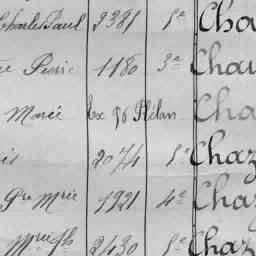 Charles Paul 3381 1e Cha
Pierre 1180 3e Chau
Marie Ex 96 Cha
2074 1e Chaz
Pre Mrie 1921 4e Chaz
Mrie Jh 2430 1e Chaz